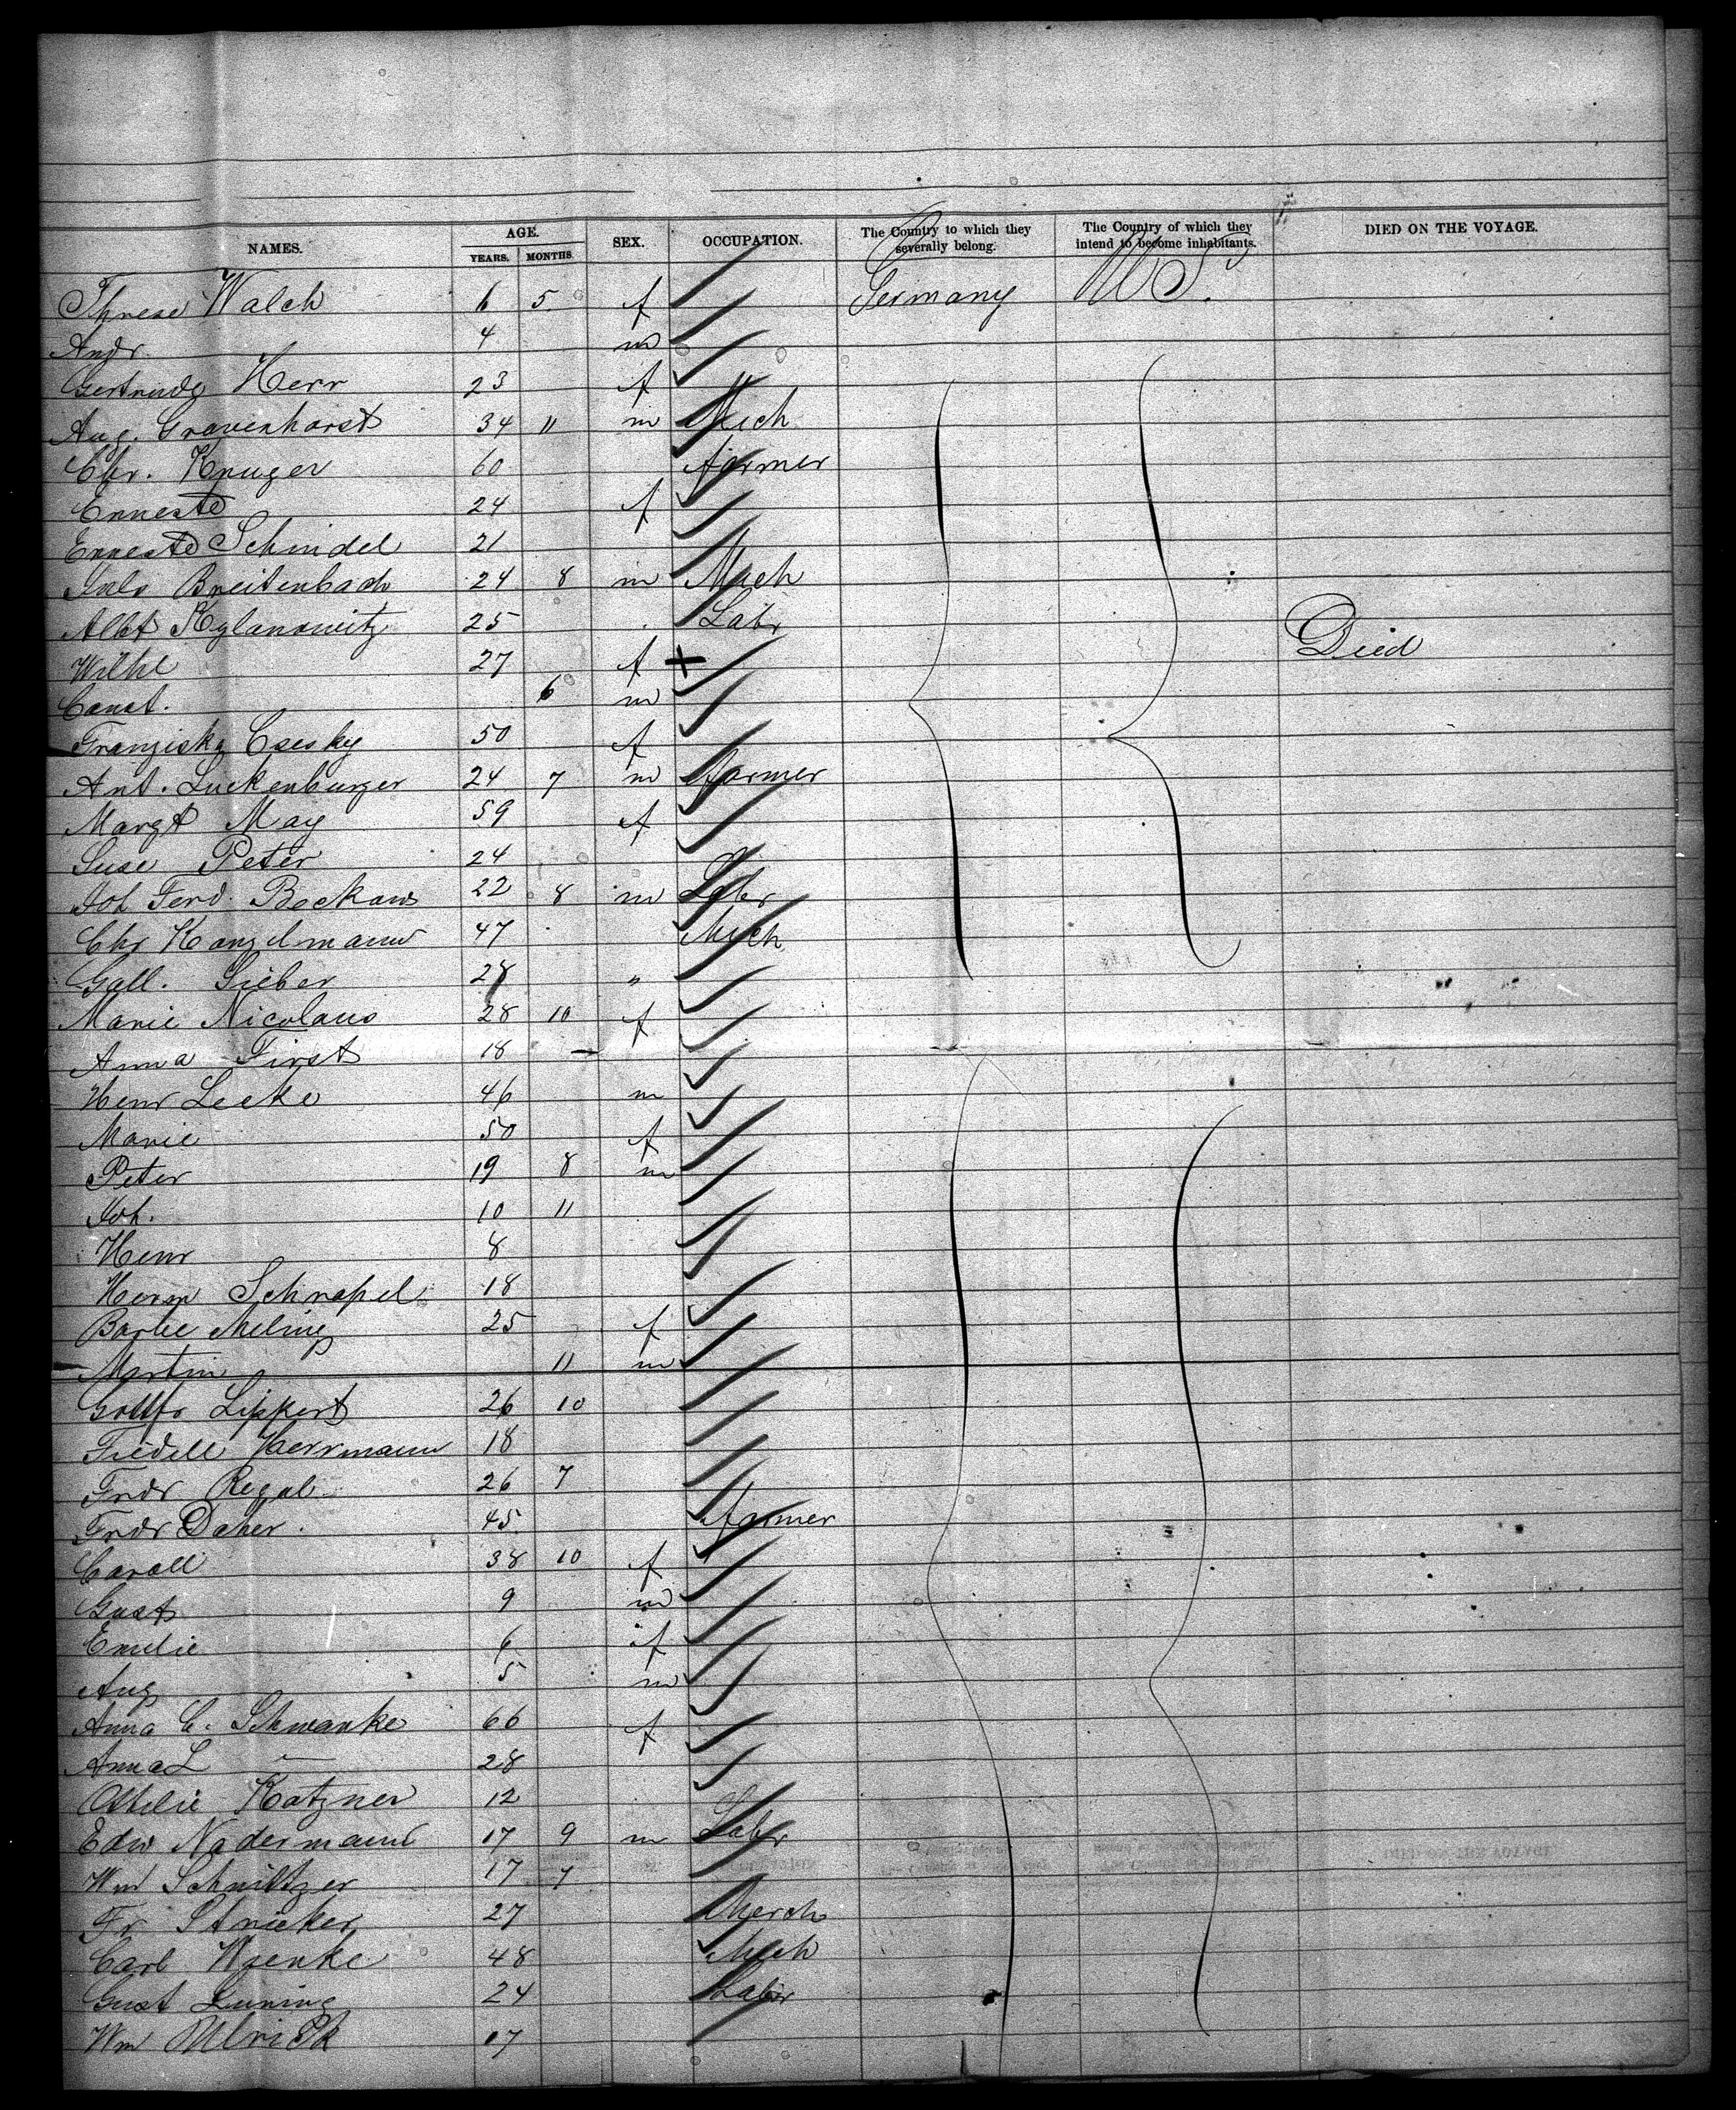 NAMES. AGE. YEARS. MONTHS. SEX. OCCUPATION. The Country to which they severally belong. The Country of which they intend to become inhabitants. DIED ON THE VOYAGE.
Threse Walch 6 5 f Germany U.S.
Andr. 4 m
Gertrude Herr 23 f
Aug. Gravenhorst 34 11 m Mech
Chr. Kruger 60 farmer
Erneste 24 f
Erneste Schindel 21
Breitenbach 24 8 m Mech
Albt 25 Labr
Wilhe 27 f + Died
Const. 6 m
Franziska Csesky 50 f
Ant. Luckenburger 24 7 m farmer
Margt May 59 f
Suse Peter 24
Joh Ferd. Beckaus 22 8 m Labr
Chr Kanzelmann 47 Mech
Gall. Sieber 28 "
Marie Nicolaus 28 10 f
Anna First 18
Henr Leeke 46 m
Marie 50 f
Peter 19 8 m
Joh. 10 11
Henr 8
Herm Schnapel 18
Barbe Meling 25 f
Martin 11 m
Gottfr Lippert 26 10
Fiedele Herrmann 18
Frdr Regal 26 7
Frdr Daher. 45 farmer
Caroll 38 10 f
Gust 9 m
Emilie 6 f
Aug 5 m
Anna C. Schwanke 66 f
Anna L — 28
Ottilie Katzner 12
Edw Nadermann 17 9 m Labr
Wm Schnittzer 17 7
Fr Stricker 27 Merch
Carl Waenke 48 Mech
Gust Luning 24 Labr
Wm Ulrich 17